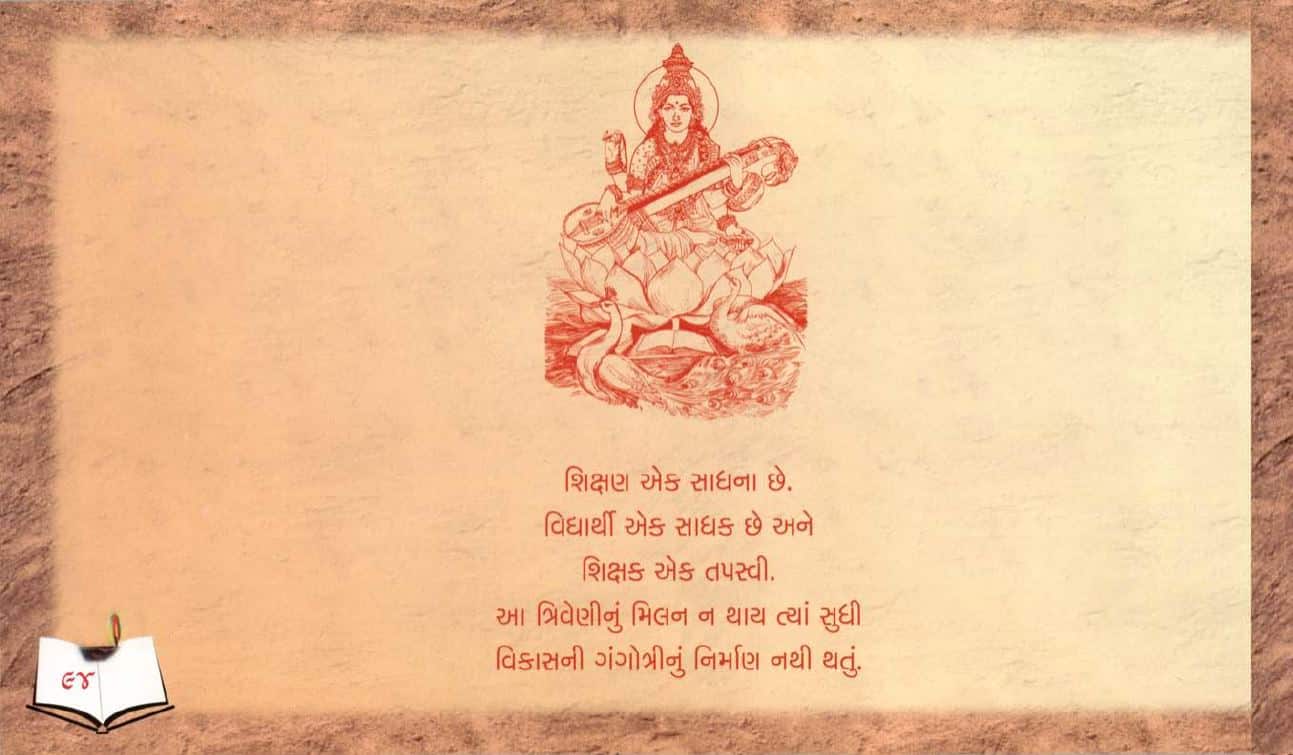 શિક્ષણ એક સાધના છે.
વિદ્યાર્થી એક સાધક છે અને
શિક્ષક એક તપસ્વી.
આ ત્રિવેણીનું મિલન ન થાય ત્યાં સુધી
વિકાસની ગંગોત્રીનું નિર્માણ નથી થતું.
૯૪